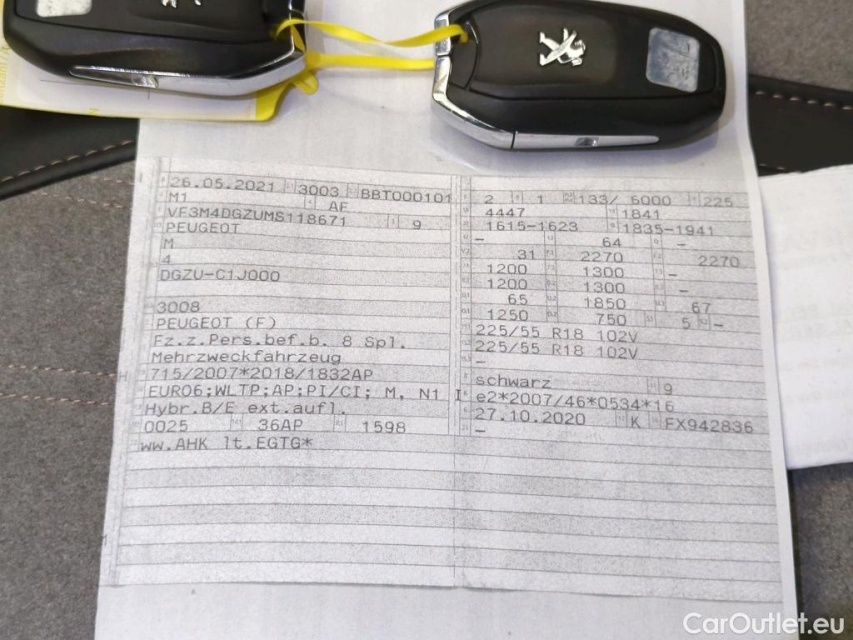 26.05.2021 3003 BBT000101
M1 AF
VF3M4DGZUMS118671 9
PEUGEOT
M
4
DGZU-C1J000
3008
PEUGEOT (F)
Fz.z.Pers.bef.b. 8 Spl.
Mehrzweckfahrzeug
715/2007*2018/1832AP
EURO6;WLTP;AP;PI/CI; M, N1 I
Hybr.B/E ext.aufl.
0025 36AP 1598
ww.AHK lt.EGTG*
2 1 133/ 6000 225
4447 1841
1615-1623 1835-1941
- 64 -
31 2270 2270
1200 1300 -
1200 1300 -
65 1850 67
1250 750 5 -
225/55 R18 102V
225/55 R18 102V
-
schwarz 9
e2*2007/46*0534*16
27.10.2020 K FX942836
-
CarOutlet.eu